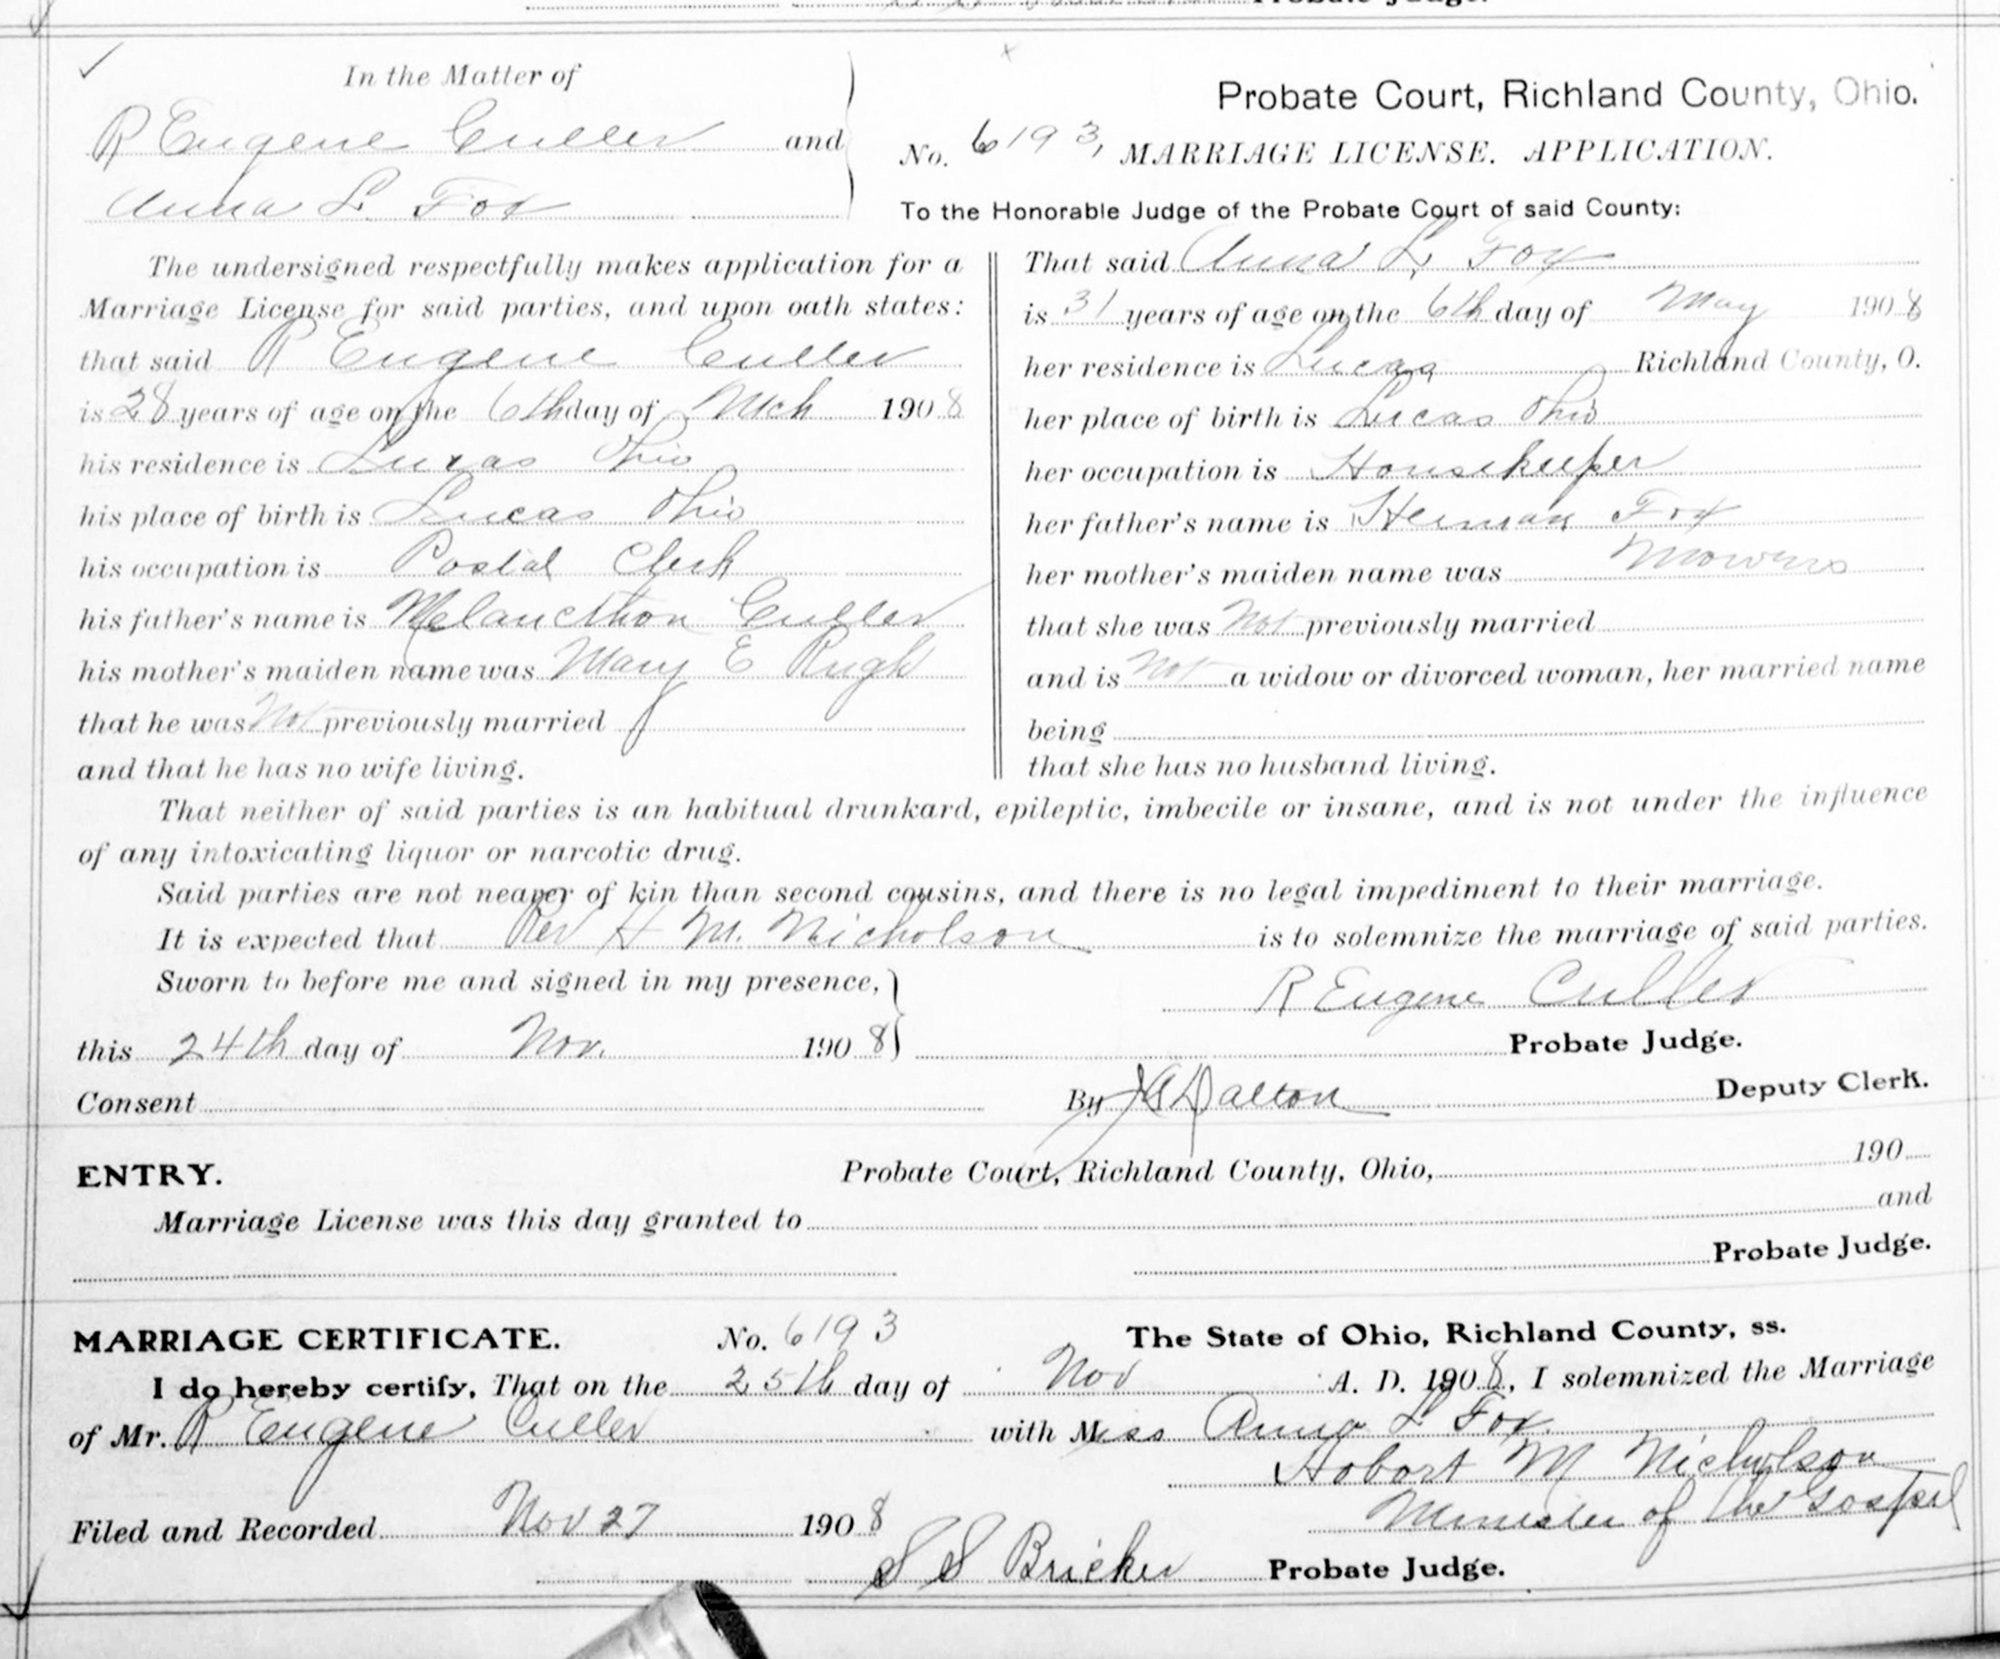 Probate Judge.
In the Matter of
R Eugene Culler and
Anna L. Fox
Probate Court, Richland County, Ohio.
No. 6193, MARRIAGE LICENSE. APPLICATION.
To the Honorable Judge of the Probate Court of said County:
The undersigned respectfully makes application for a
Marriage License for said parties, and upon oath states:
that said R Eugene Culler
is 28 years of age on the 6th day of Mch 1908
his residence is Lucas Ohio
his place of birth is Lucas Ohio
his occupation is Postal Clerk
his father's name is Melancthon Culler
his mother's maiden name was Mary E Rugh
that he was Not previously married
and that he has no wife living.
That said Anna L. Fox
is 31 years of age on the 6th day of May 1908
her residence is Lucas Richland County, O.
her place of birth is Lucas Ohio
her occupation is Housekeeper
her father's name is Herman Fox
her mother's maiden name was Mowers
that she was Not previously married
and is Not a widow or divorced woman, her married name
being
that she has no husband living.
That neither of said parties is an habitual drunkard, epileptic, imbecile or insane, and is not under the influence
of any intoxicating liquor or narcotic drug.
Said parties are not nearer of kin than second cousins, and there is no legal impediment to their marriage.
It is expected that Rev H M. Nicholson is to solemnize the marriage of said parties.
Sworn to before me and signed in my presence,
R Eugene Culler
this 24th day of Nov. 1908 Probate Judge.
Consent By Dalton Deputy Clerk.
ENTRY. Probate Court, Richland County, Ohio, 190
Marriage License was this day granted to and
Probate Judge.
MARRIAGE CERTIFICATE. No. 6193 The State of Ohio, Richland County, ss.
I do hereby certify, That on the 25th day of Nov A. D. 1908, I solemnized the Marriage
of Mr. R Eugene Culler with Miss Anna L Fox.
Hobart M Nicholson
Minister of the Gospel
Filed and Recorded Nov 27 1908
S S Bricker Probate Judge.